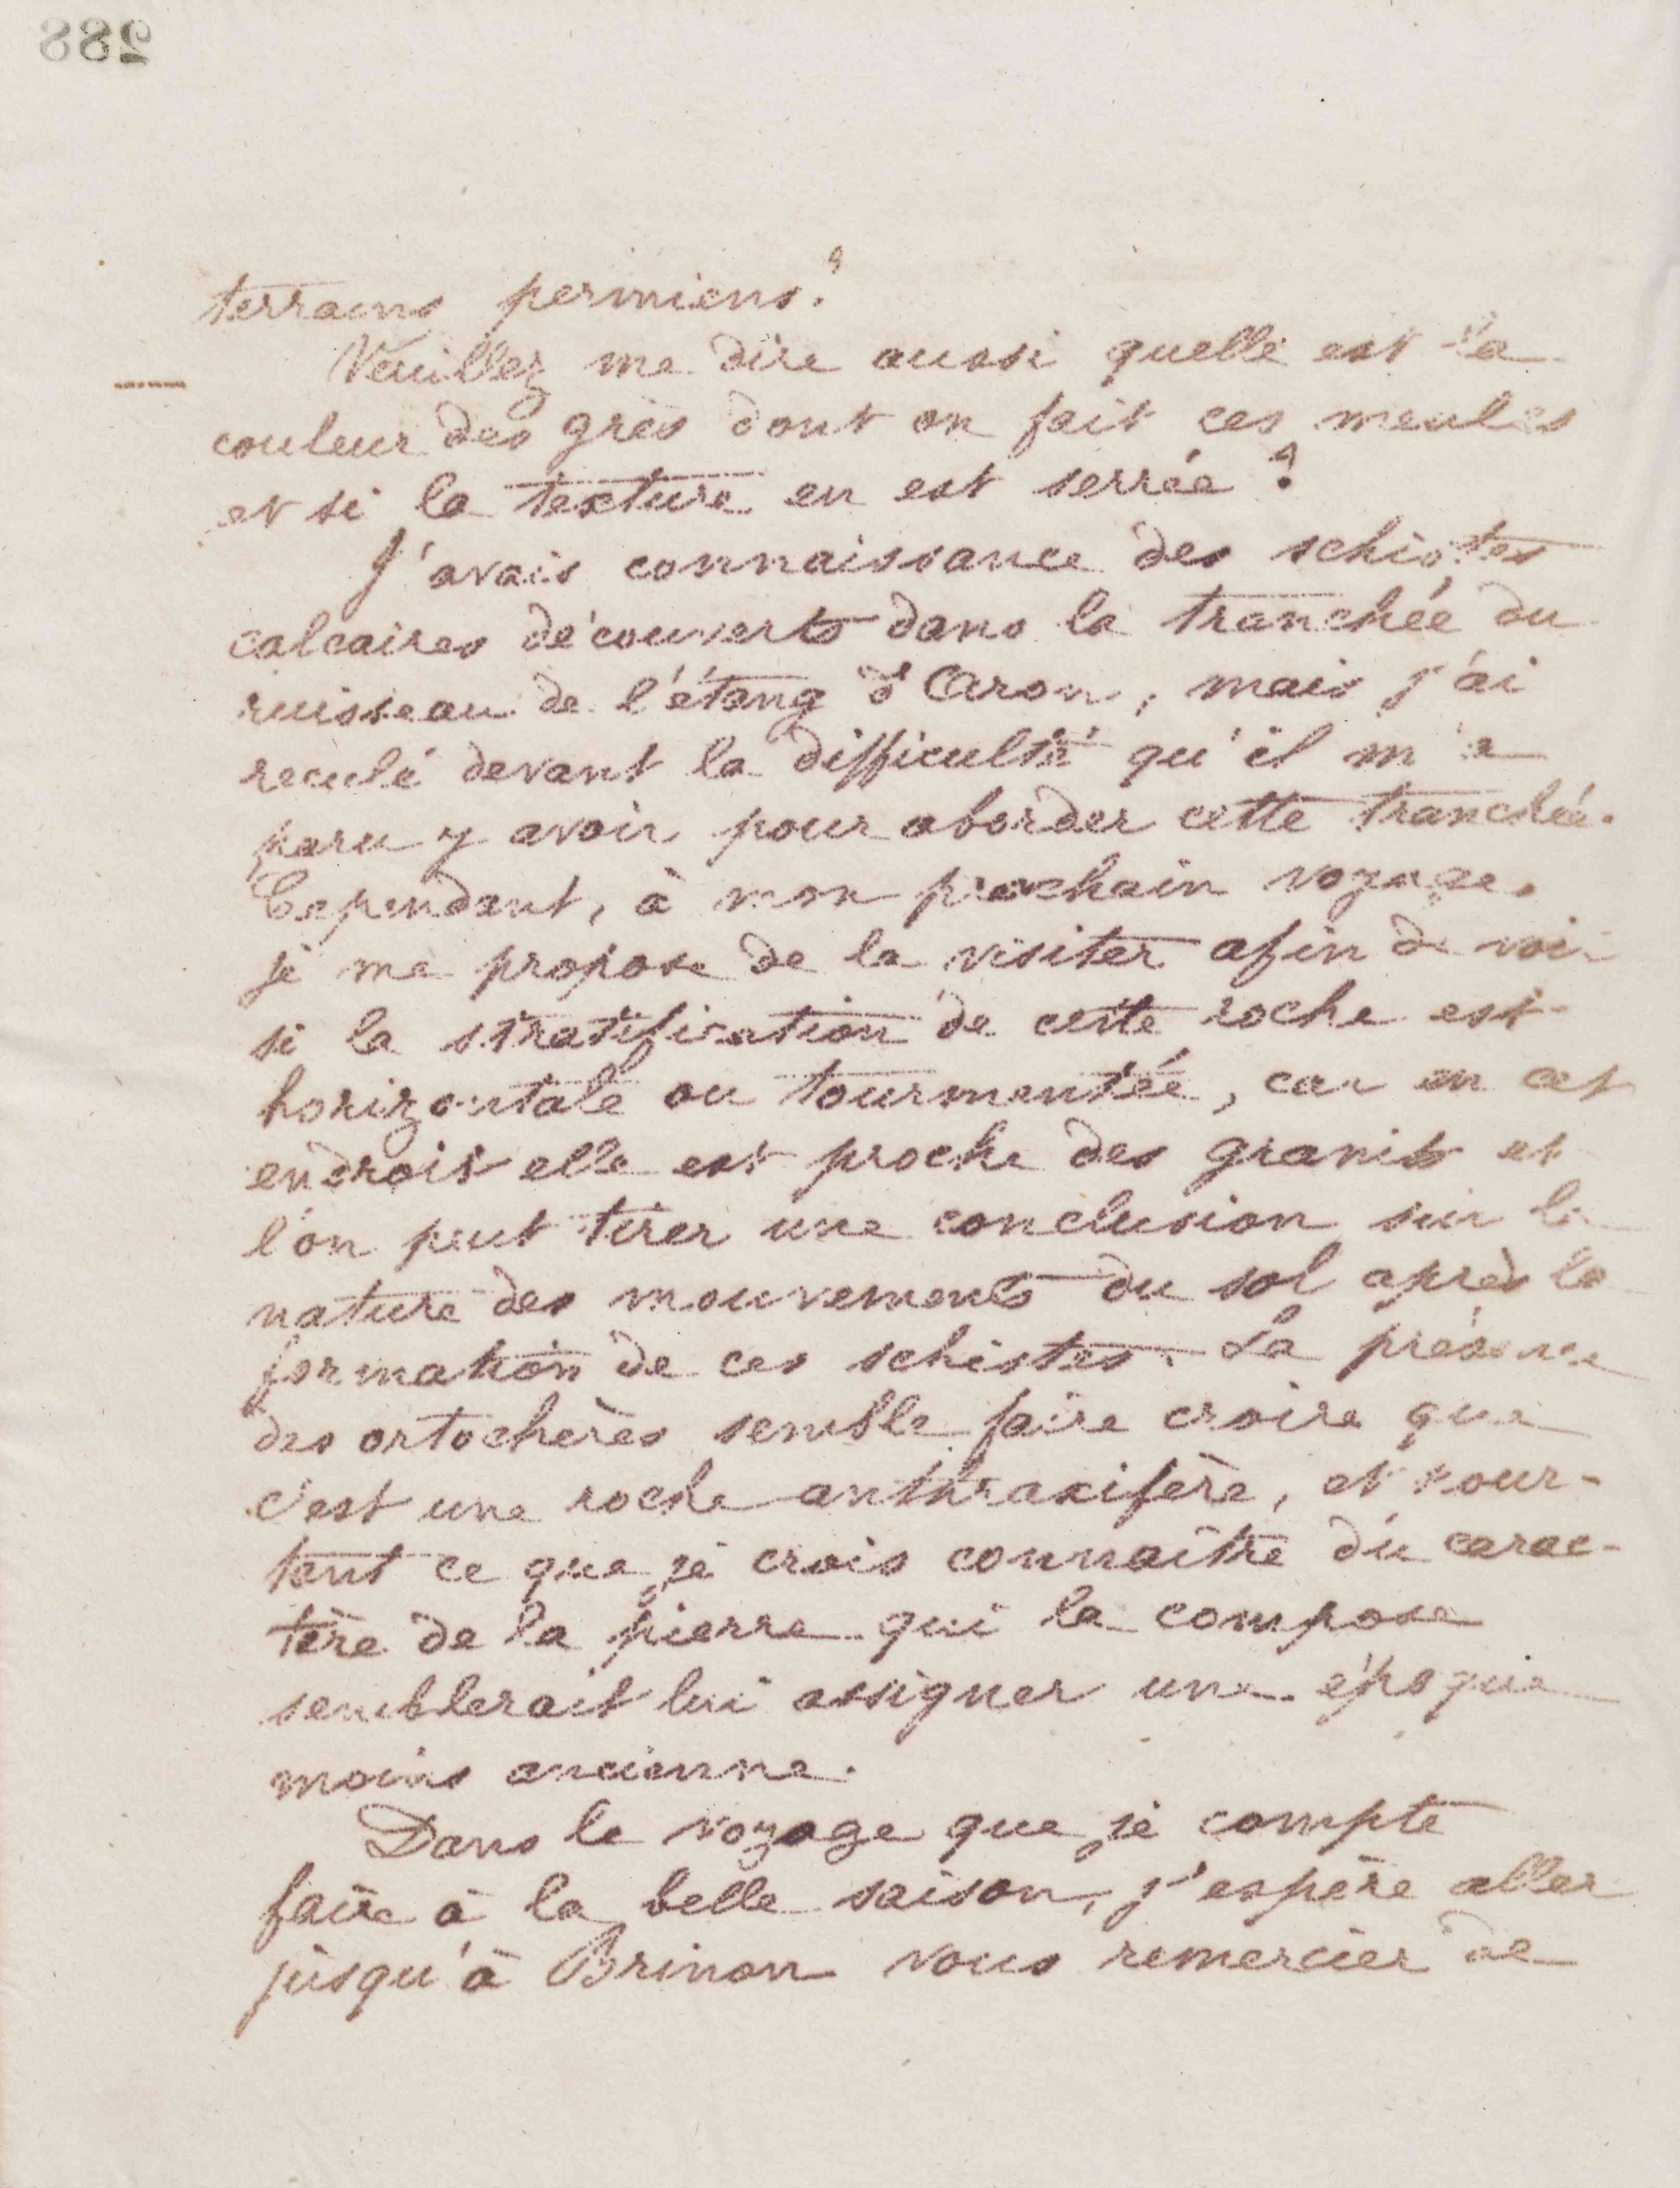 288
terrains permiens ?
Veuillez me dire aussi quelle est la
couleur des grès dont on fait ces meules
et si la texture en est serrée ?
J'avais connaissance des schistes
calcaires découverts dans la tranchée du
ruisseau de l'étang d'Aron, mais j'ai
reculé devant la difficulté qu'il m'a
paru y avoir pour aborder cette tranchée.
Cependant, à mon prochain voyage,
je me propose de la visiter afin de voir
si la stratification de cette roche est
horizontale ou tourmentée, car en cet
endroit elle est proche des granits et
l'on peut tirer une conclusion sur la
nature des mouvements du sol après la
formation de ces schistes. La présence
des ortochères semble faire croire que
c'est une roche anthraxifère, et pour-
tant ce que je crois connaître du carac-
tère de la pierre qui la compose
semblerait lui assigner une époque
moins ancienne.
Dans le voyage que je compte
faire à la belle saison, j'espère aller
jusqu'à Brinon vous remercier de